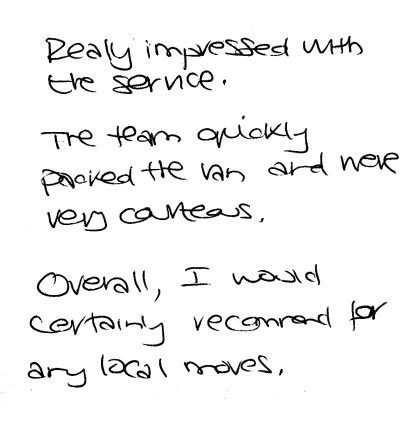 Really impressed with
the service.
The team quickly
packed the van and were
very courteous.
Overall, I would
certainly recommend for
any local moves.